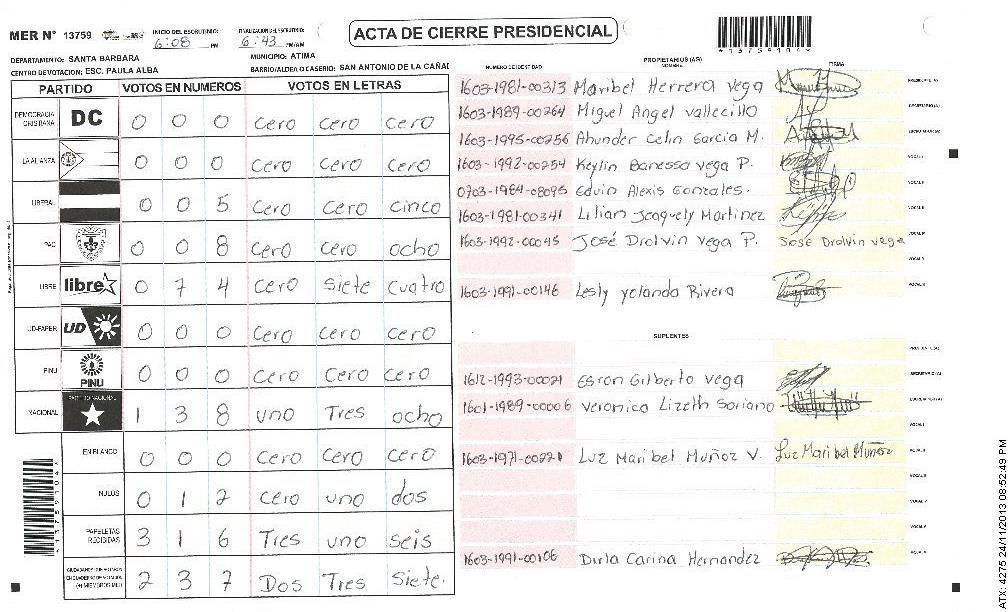 MER N° 13759
INICIO DEL ESCRUTINIO:
6:08 PM
FINALIZACION DEL ESCRUTINIO:
6:43 PM/AM
ACTA DE CIERRE PRESIDENCIAL
*13759104*
DEPARTAMENTO: SANTA BARBARA
MUNICIPIO: ATIMA
CENTRO DE VOTACION: ESC. PAULA ALBA
BARRIO/ALDEA O CASERIO: SAN ANTONIO DE LA CAÑAD
PARTIDO VOTOS EN NUMEROS VOTOS EN LETRAS
DEMOCRACIA CRISTIANA DC 0 0 0 Cero Cero Cero
LA ALIANZA 0 0 0 Cero Cero Cero
LIBERAL 0 0 5 Cero Cero cinco
PAC 0 0 8 Cero Cero ocho
LIBRE libre 0 7 4 Cero Siete Cuatro
UD-FAPER UD 0 0 0 Cero Cero Cero
PINU PINU 0 0 0 Cero Cero Cero
NACIONAL PARTIDO NACIONAL 1 3 8 uno Tres ocho
EN BLANCO 0 0 0 Cero Cero Cero
NULOS 0 1 2 Cero uno dos
PAPELETAS RECIBIDAS 3 1 6 Tres uno seis
CIUDADANOS QUE VOTARON EN CUADERNO DE VOTACION (+) MIEMBROS MER 2 3 7 Dos Tres Siete.
PROPIETARIOS (AS)
NUMERO DE IDENTIDAD NOMBRE: FIRMA
1603-1981-00313 Maribel Herrera Vega PRESIDENTE (A)
1603-1989-00264 Miguel Angel Vallecillo SECRETARIO (A)
1603-1995-00256 Ahunder Celin Garcia M. ESCRUTADOR (A)
1603-1992-00254 Keylin Banessa Vega P. VOCAL I
0703-1984-08095 Edvin Alexis Gonzales. VOCAL II
1603-1981-00341 Lilian Jeaquely Martinez VOCAL III
1603-1992-00045 José Drolvin Vega P. Jose Drolvin vega
1603-1991-00146 Lesly Yolanda Rivera
SUPLENTES
PRESIDENTE (A)
1612-1993-00021 Esron Gilberto Vega SECRETARIO (A)
1601-1989-00006 Veronica Lizeth Soriano ESCRUTADOR (A)
VOCAL I
1603-1971-00221 Luz Maribel Muñoz V. Luz Maribel Muñoz
1603-1991-00106 Dirla Carina Hernandez
*13759104*
ATX: 4275 24/11/2013 08:52:49 PM